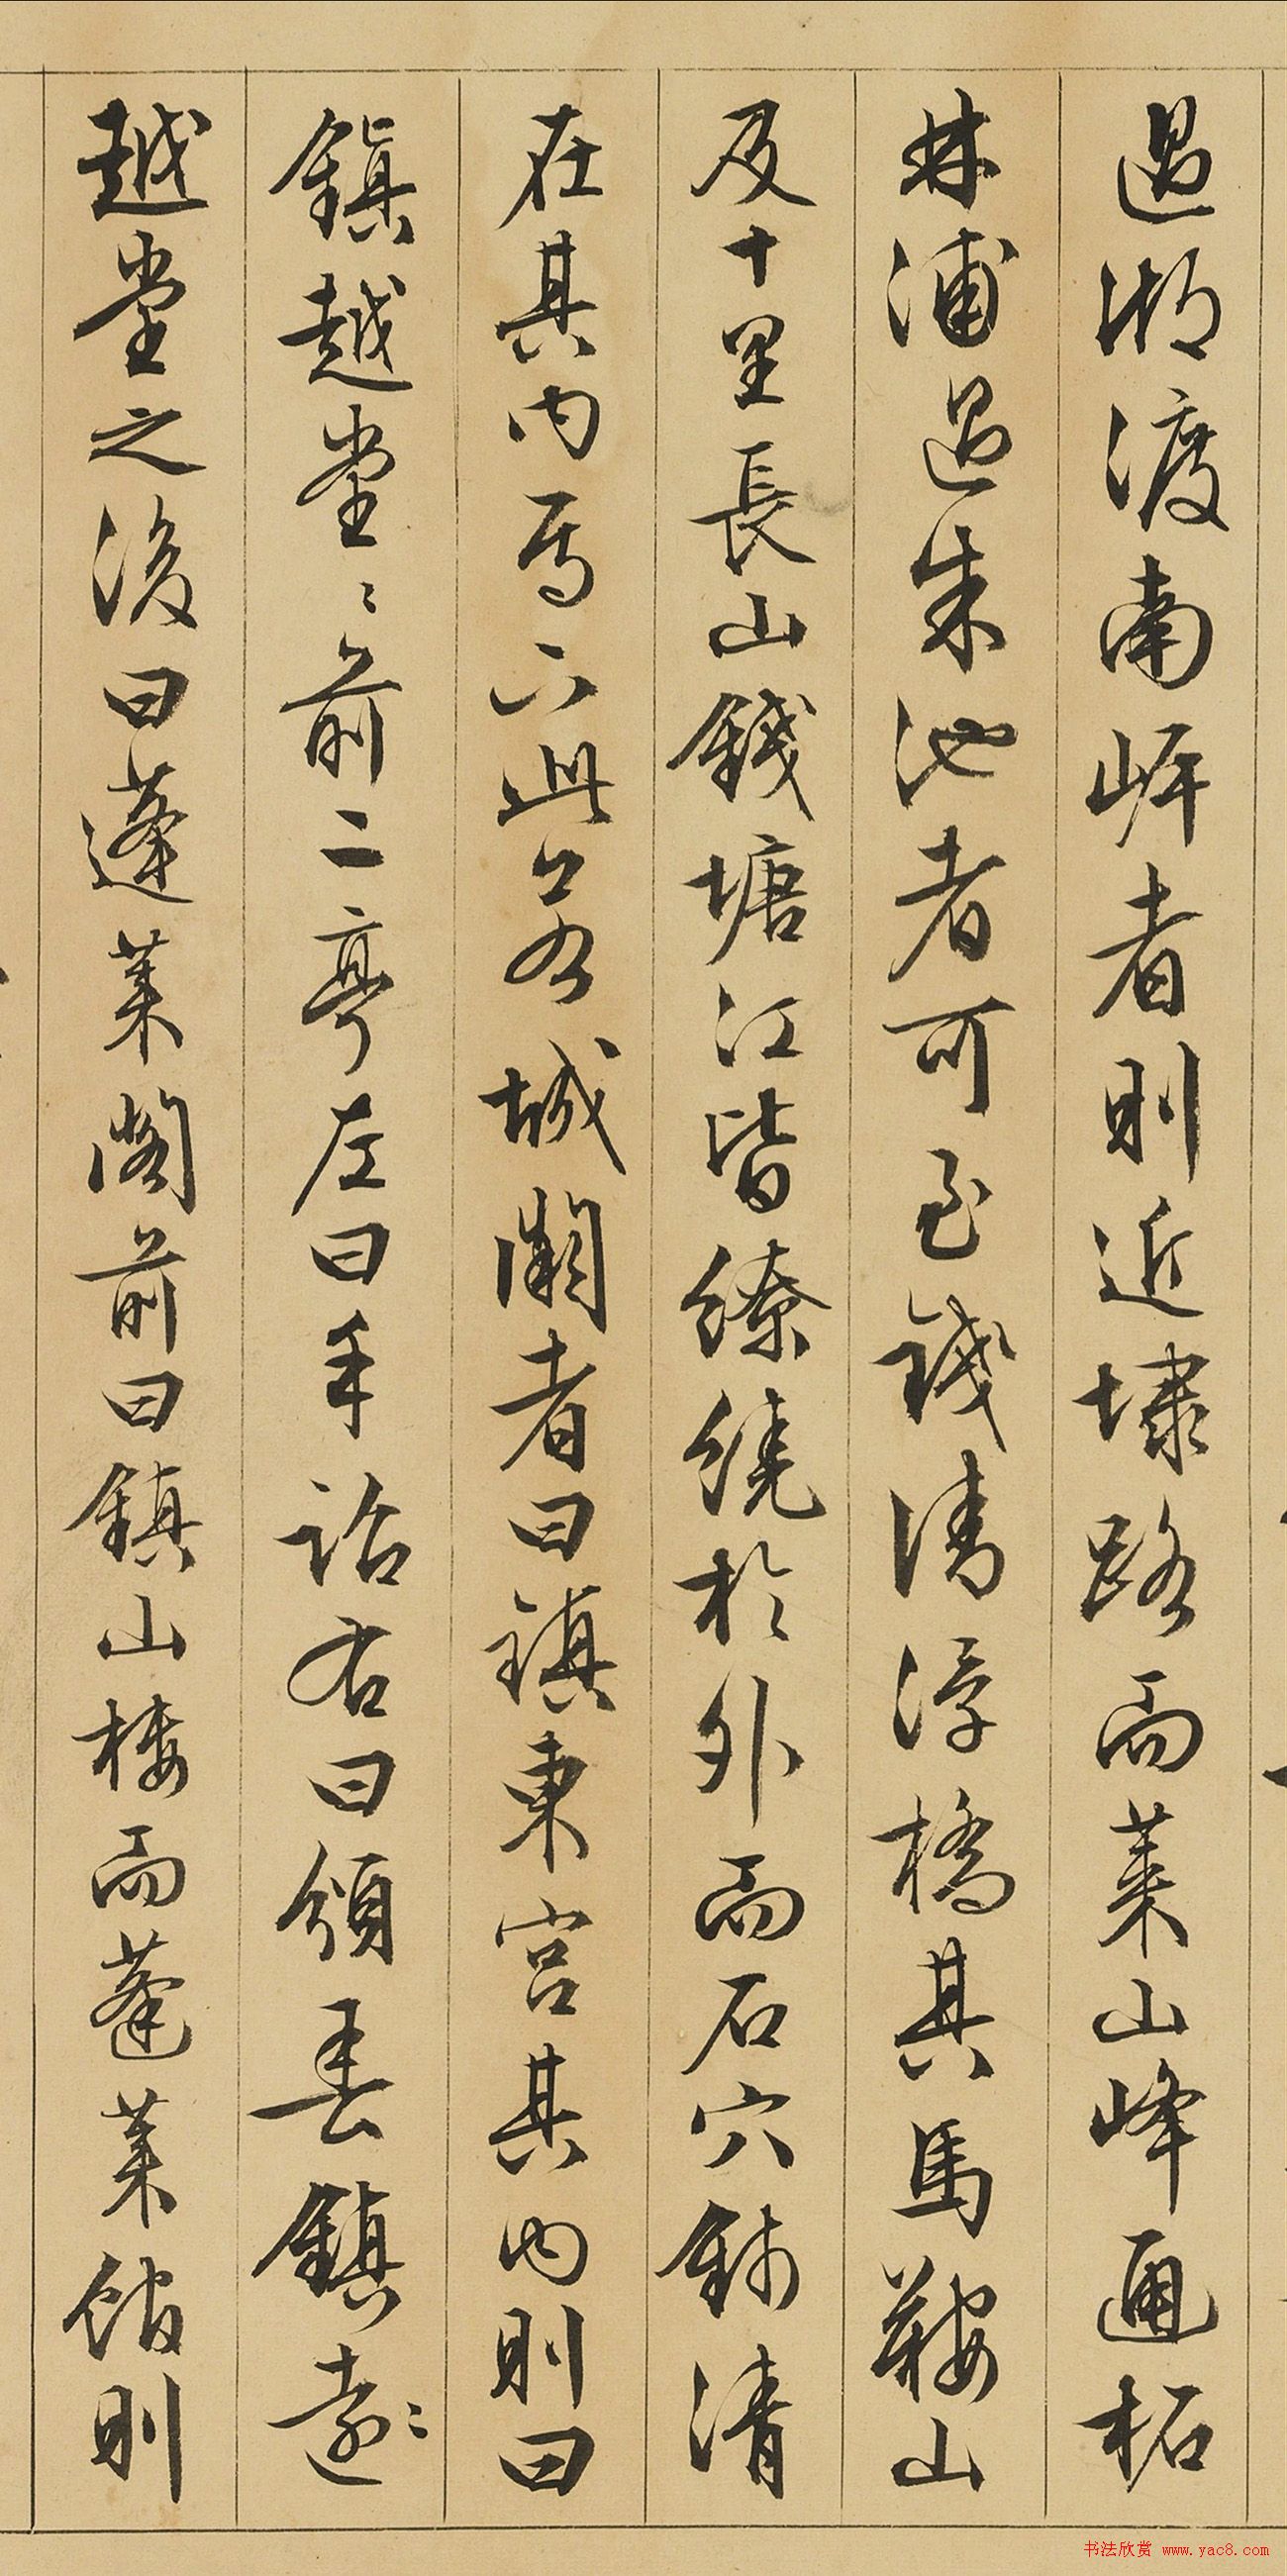 過湘渡南岸者則近埭路而萊山峰通柘
林浦過朱池者可至錢清浮橋其馬鞍山
及十里長山錢塘江皆繚繞於外而石穴錢清
在其內焉六此名城闕者曰鎮東宮其內則曰
鎮越堂〻前二亭左曰手詔右曰頒春鎮遠〻
越堂之後曰蓬萊閣前曰鎮山樓而蓬萊館則
书法欣赏 www.yac8.com